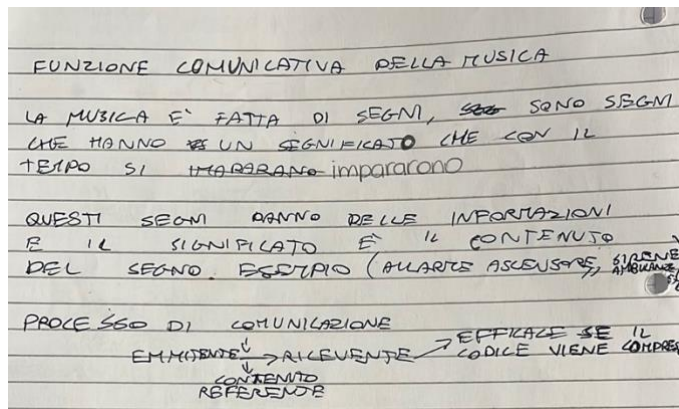 FUNZIONE COMUNICATIVA DELLA MUSICA
LA MUSICA E' FATTA DI SEGNI, SONO SEGNI
CHE HANNO UN SIGNIFICATO CHE CON IL
TEMPO SI IMPARARANO impararono
QUESTI SEGNI DANNO DELLE INFORMAZIONI
E IL SIGNIFICATO È IL CONTENUTO
DEL SEGNO. ESEMPIO (ALLARME ASCENSORE, SIRENE
AMBULANZE
PROCESSO DI COMUNICAZIONE
EFFICACE SE IL
EMMITENTE → RICEVENTE → CODICE VIENE COMPRES
CONTENUTO
REFERENTE